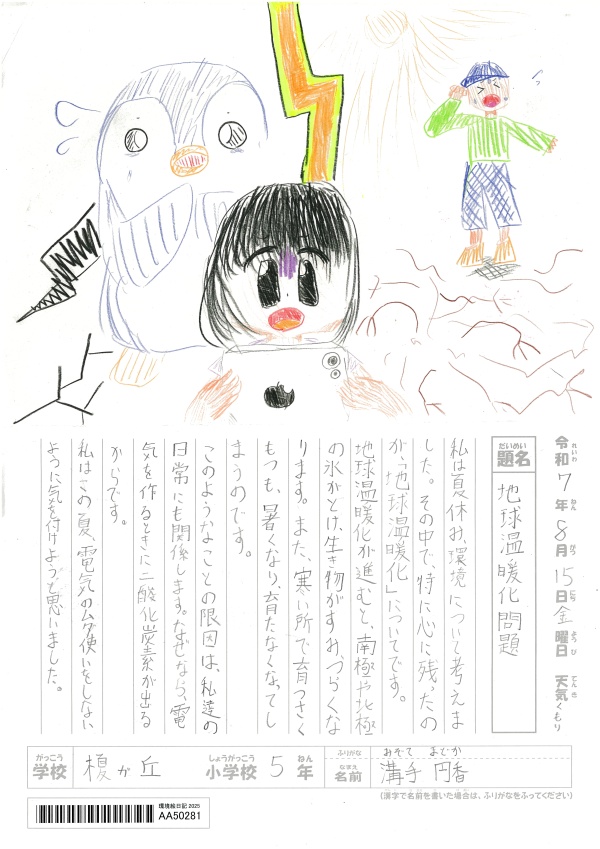 令和7年8月15日金曜日 天気くもり
れいわ ねん がつ にち ようび てんき
だいめい
題名 地球温暖化問題
私は夏休み、環境について考えま
した。その中で、特に心に残ったの
が「地球温暖化」についてです。
地球温暖化が進むと、南極や北極
の氷がとけ、生き物がすみづらくな
ります。また、寒い所で育つさく
もつも、暑くなり、育たなくなってし
まうのです。
このようなことの限因は、私達の
日常にも関係します。なぜなら、電
気を作るときに二酸化炭素が出る
からです。
私はこの夏、電気のムダ使いをしない
ように気を付けようと思いました。
がっこう しょうがっこう ねん ふりがな みぞて まどか
学校 榎が丘 小学校 5年 なまえ 名前 溝手 円香
(漢字で名前を書いた場合は、ふりがなをふってください)
環境絵日記 2025
AA50281